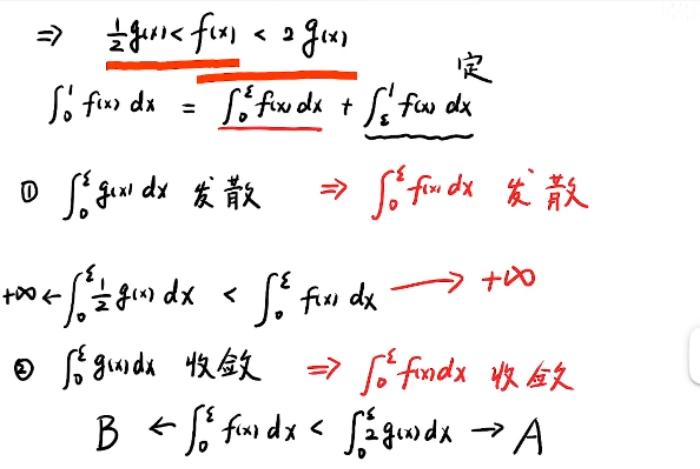 ⇒ ½g(x) < f(x) < 2 g(x)
定
∫₀¹ f(x) dx = ∫₀^ε f(x) dx + ∫_ε¹ f(x) dx
① ∫₀^ε g(x) dx 发散 ⇒ ∫₀^ε f(x) dx 发散
+∞ ← ∫₀^ε ½ g(x) dx < ∫₀^ε f(x) dx → +∞
② ∫₀^ε g(x) dx 收敛 ⇒ ∫₀^ε f(x) dx 收敛
B ← ∫₀^ε f(x) dx < ∫₀^ε 2 g(x) dx → A